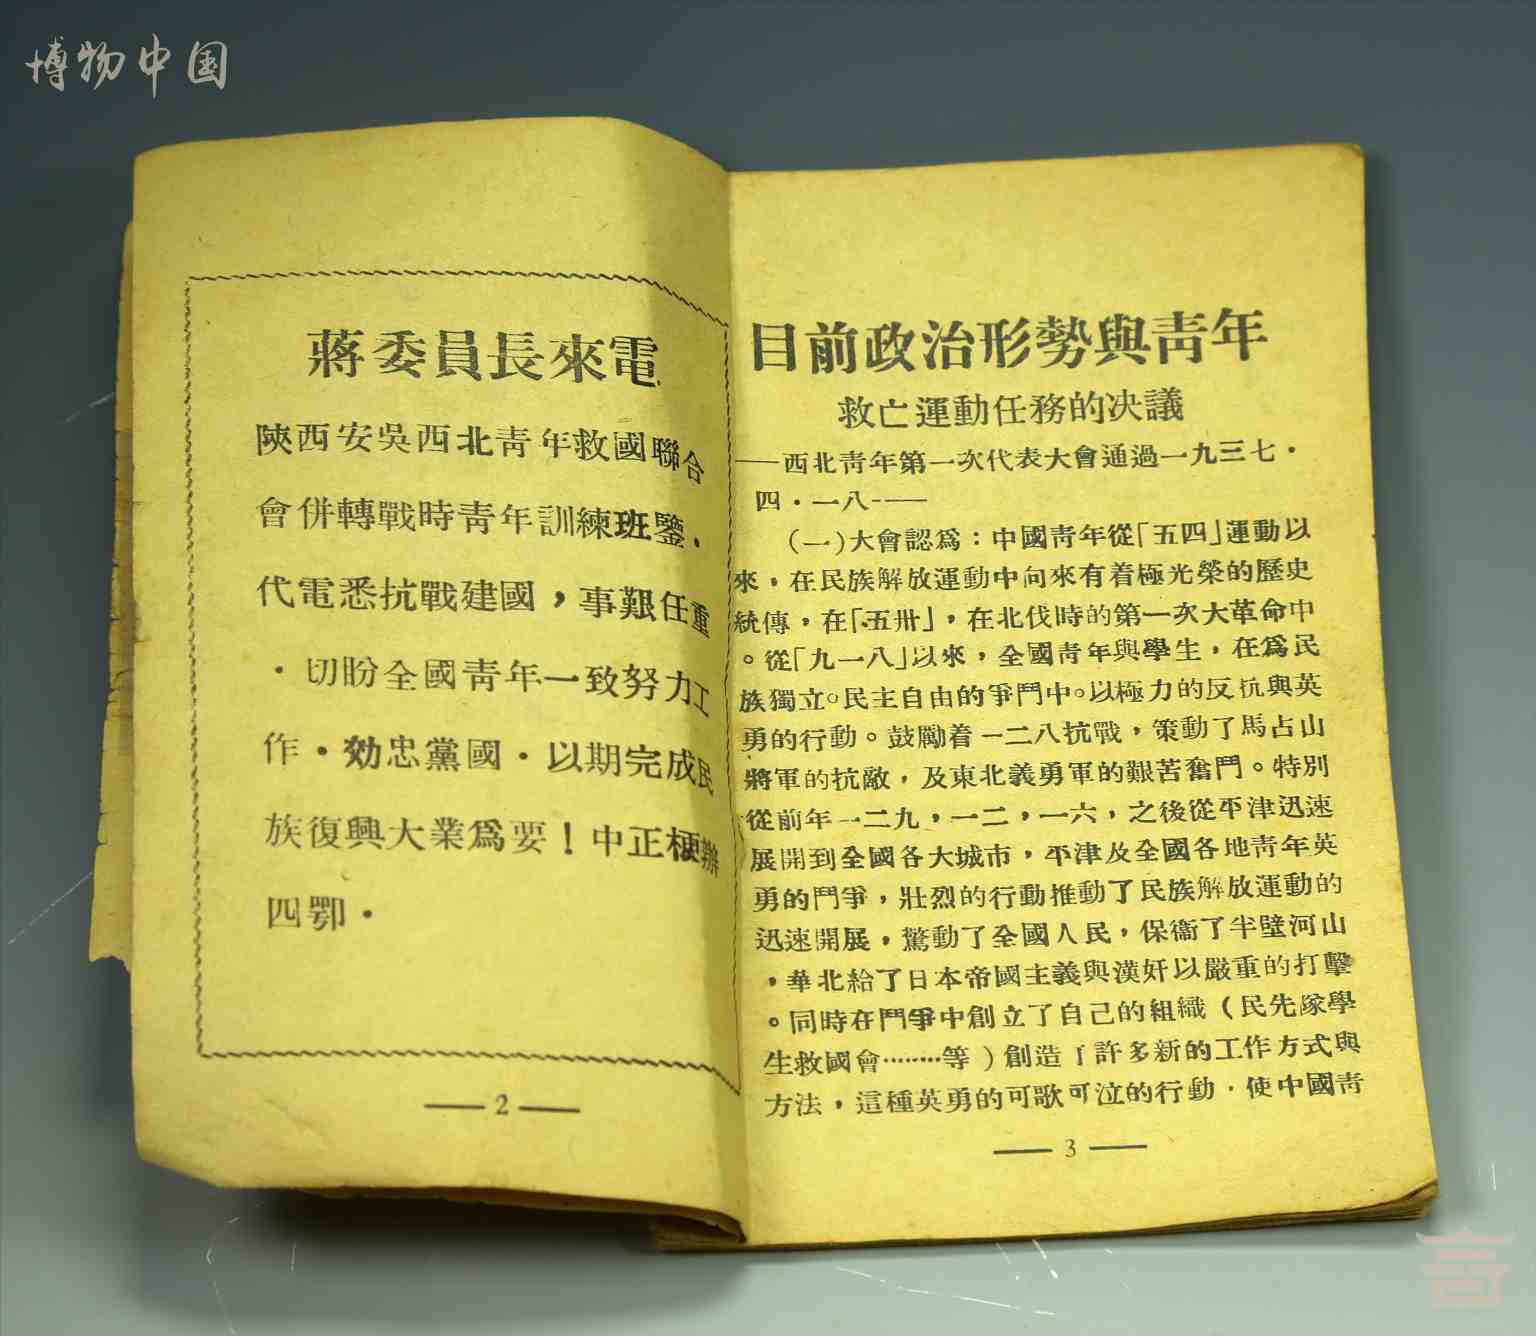 博物中国
蔣委員長來電
陝西安吳西北靑年救國聯合
會併轉戰時靑年訓練班鑒．
代電悉抗戰建國，事艱任重
．切盼全國靑年一致努力工
作．効忠黨國．以期完成民
族復興大業爲要！中正梗辦
四鄂．
—— 2 ——
目前政治形勢與靑年
救亡運動任務的决議
——西北靑年第一次代表大會通過一九三七．
四．一八——
（一）大會認爲：中國靑年從「五四」運動以
來，在民族解放運動中向來有着極光榮的歷史
統傳，在「五卅」，在北伐時的第一次大革命中
。從「九一八」以來，全國靑年與學生，在爲民
族獨立。民主自由的爭鬥中。以極力的反抗與英
勇的行動。鼓勵着一二八抗戰，策動了馬占山
將軍的抗敵，及東北義勇軍的艱苦奮鬥。特別
從前年一二九，一二，一六，之後從平津迅速
展開到全國各大城市，平津及全國各地靑年英
勇的鬥爭，壯烈的行動推動了民族解放運動的
迅速開展，驚動了全國人民，保衞了半壁河山
，華北給了日本帝國主義與漢奸以嚴重的打擊
。同時在鬥爭中創立了自己的組織（民先隊學
生救國會………等）創造了許多新的工作方式與
方法，這種英勇的可歌可泣的行動．使中國靑
—— 3 ——